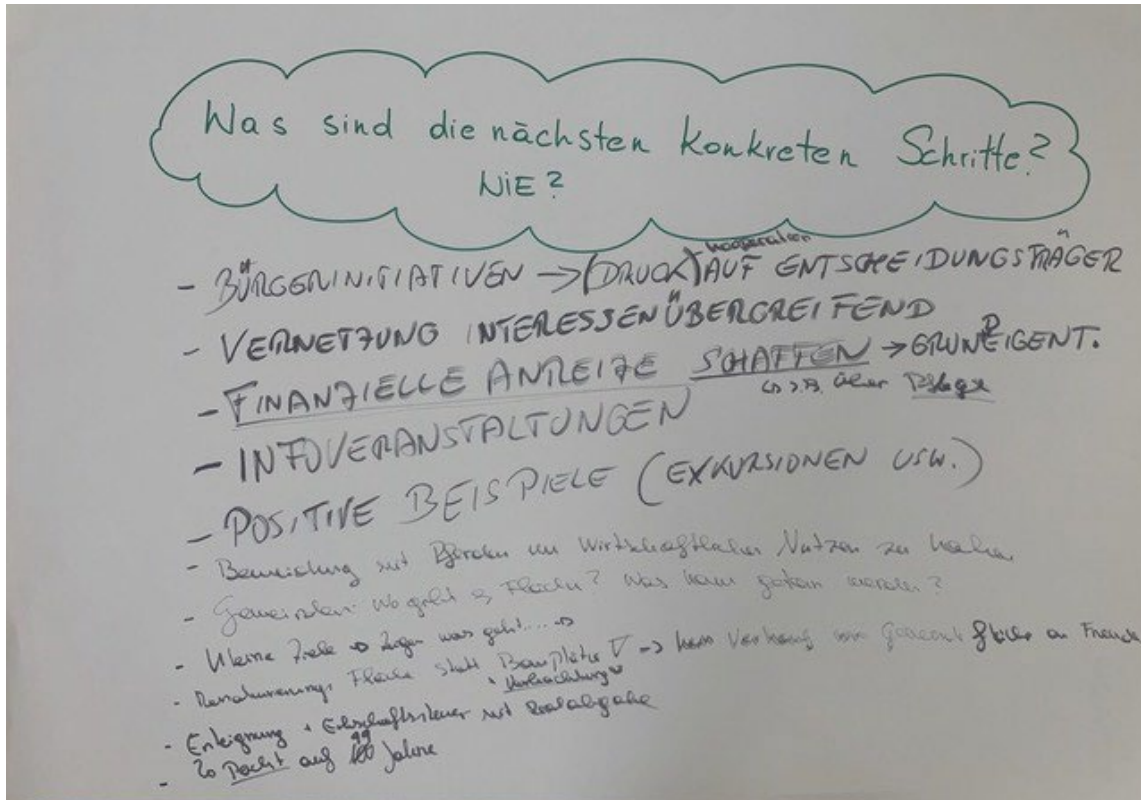 Was sind die nächsten konkreten Schritte?
WIE?
- BÜRGERINITIATIVEN → (DRUCK) Kooperation AUF ENTSCHEIDUNGSTRÄGER
- VERNETZUNG INTERESSENÜBERGREIFEND
- FINANZIELLE ANREIZE SCHAFFEN → GRUNDEIGENT.
↳ z.B. über Pflege
- INFOVERANSTALTUNGEN
- POSITIVE BEISPIELE (EXKURSIONEN USW.)
- Beweidung mit Pferden um Wirtschaftlichen Nutzen zu haben
- Gemeinden: Wo gibt es Flächen? Was kann getan werden?
- Kleine Ziele → zeigen was geht....
- Renaturierungs Fläche statt Bauplätze → kein Verkauf von Fläche an
- Enteignung + Erbschaftssteuer mit
- Pacht auf 99 Jahre